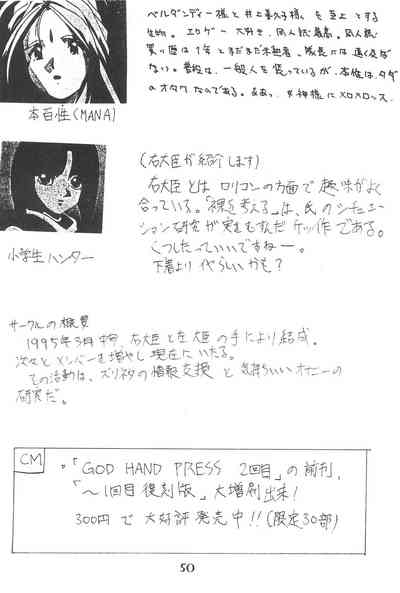 ベルダンディー様と井上喜久子様を至上とする
生物。エロゲー大好き、同人誌最高。同人誌
買い歴は1年とまだまだ未熟者、成長には遠く及ば
ない。普段は、一般人を装っているが、本性は、タダ
のオタクなのである。ああっ、女神様にメロメロッス。
本百性(MANA)
(右大臣が紹介します)
右大臣とはロリコンの方面で趣味がよく
合っている。「裸を考える」は、氏のシチュエー
ション研究が実をむすんだケッ作である。
くつしたっていいですねー。
下着より イヤらしいかも?
小学生ハンター
サークルの概要
1995年3月中旬、右大臣と左大臣の手により結成。
次々とメンバーを増やし現在にいたる。
その活動は、ズリネタの情報支援と気持ちいいオナニーの
研究だ。
CM
「GOD HAND PRESS 2回目」の前刊、
「〜1回目復刻版」大増刷出来!
300円で大好評発売中!!(限定30部)
50